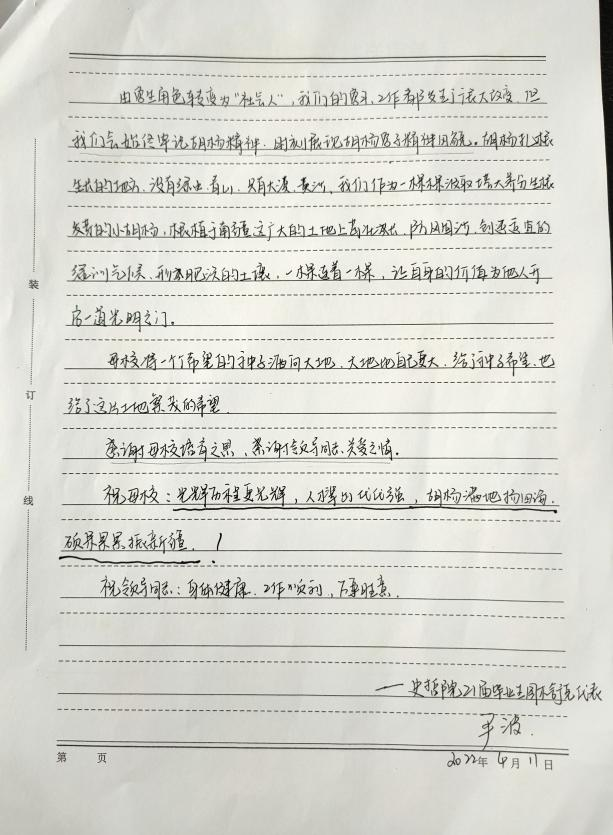 由学生角色转变为“社会人”，我们的学习、工作都发生了很大改变，但
我们会始终牢记胡杨精神，时刻展现胡杨学子精神风貌。胡杨扎根
生长的地方，没有绿水、青山，只有大漠、黄沙，我们作为一棵棵汲取塔大养分生根
发芽的小胡杨，根植于南疆这广大的土地上茁壮成长，防风固沙，创造适宜的
湿润气候、形成肥沃的土壤，一棵连着一棵，让自身的价值为他人开
启一道光明之门。
母校将一个希望的种子洒向大地，大地把自己交大，给了种子希望，也
给了这片土地繁茂的希望。
感谢母校培育之恩、感谢领导同志关爱之情。
祝母校：光辉历程更光辉，人才辈出代代强，胡杨满地扬四海，
硕果累累振新疆！
祝领导同志：身体健康、工作顺利、万事胜意。
——史哲院21届毕业生图木舒克代表
2022年4月11日
第 页
装
订
线